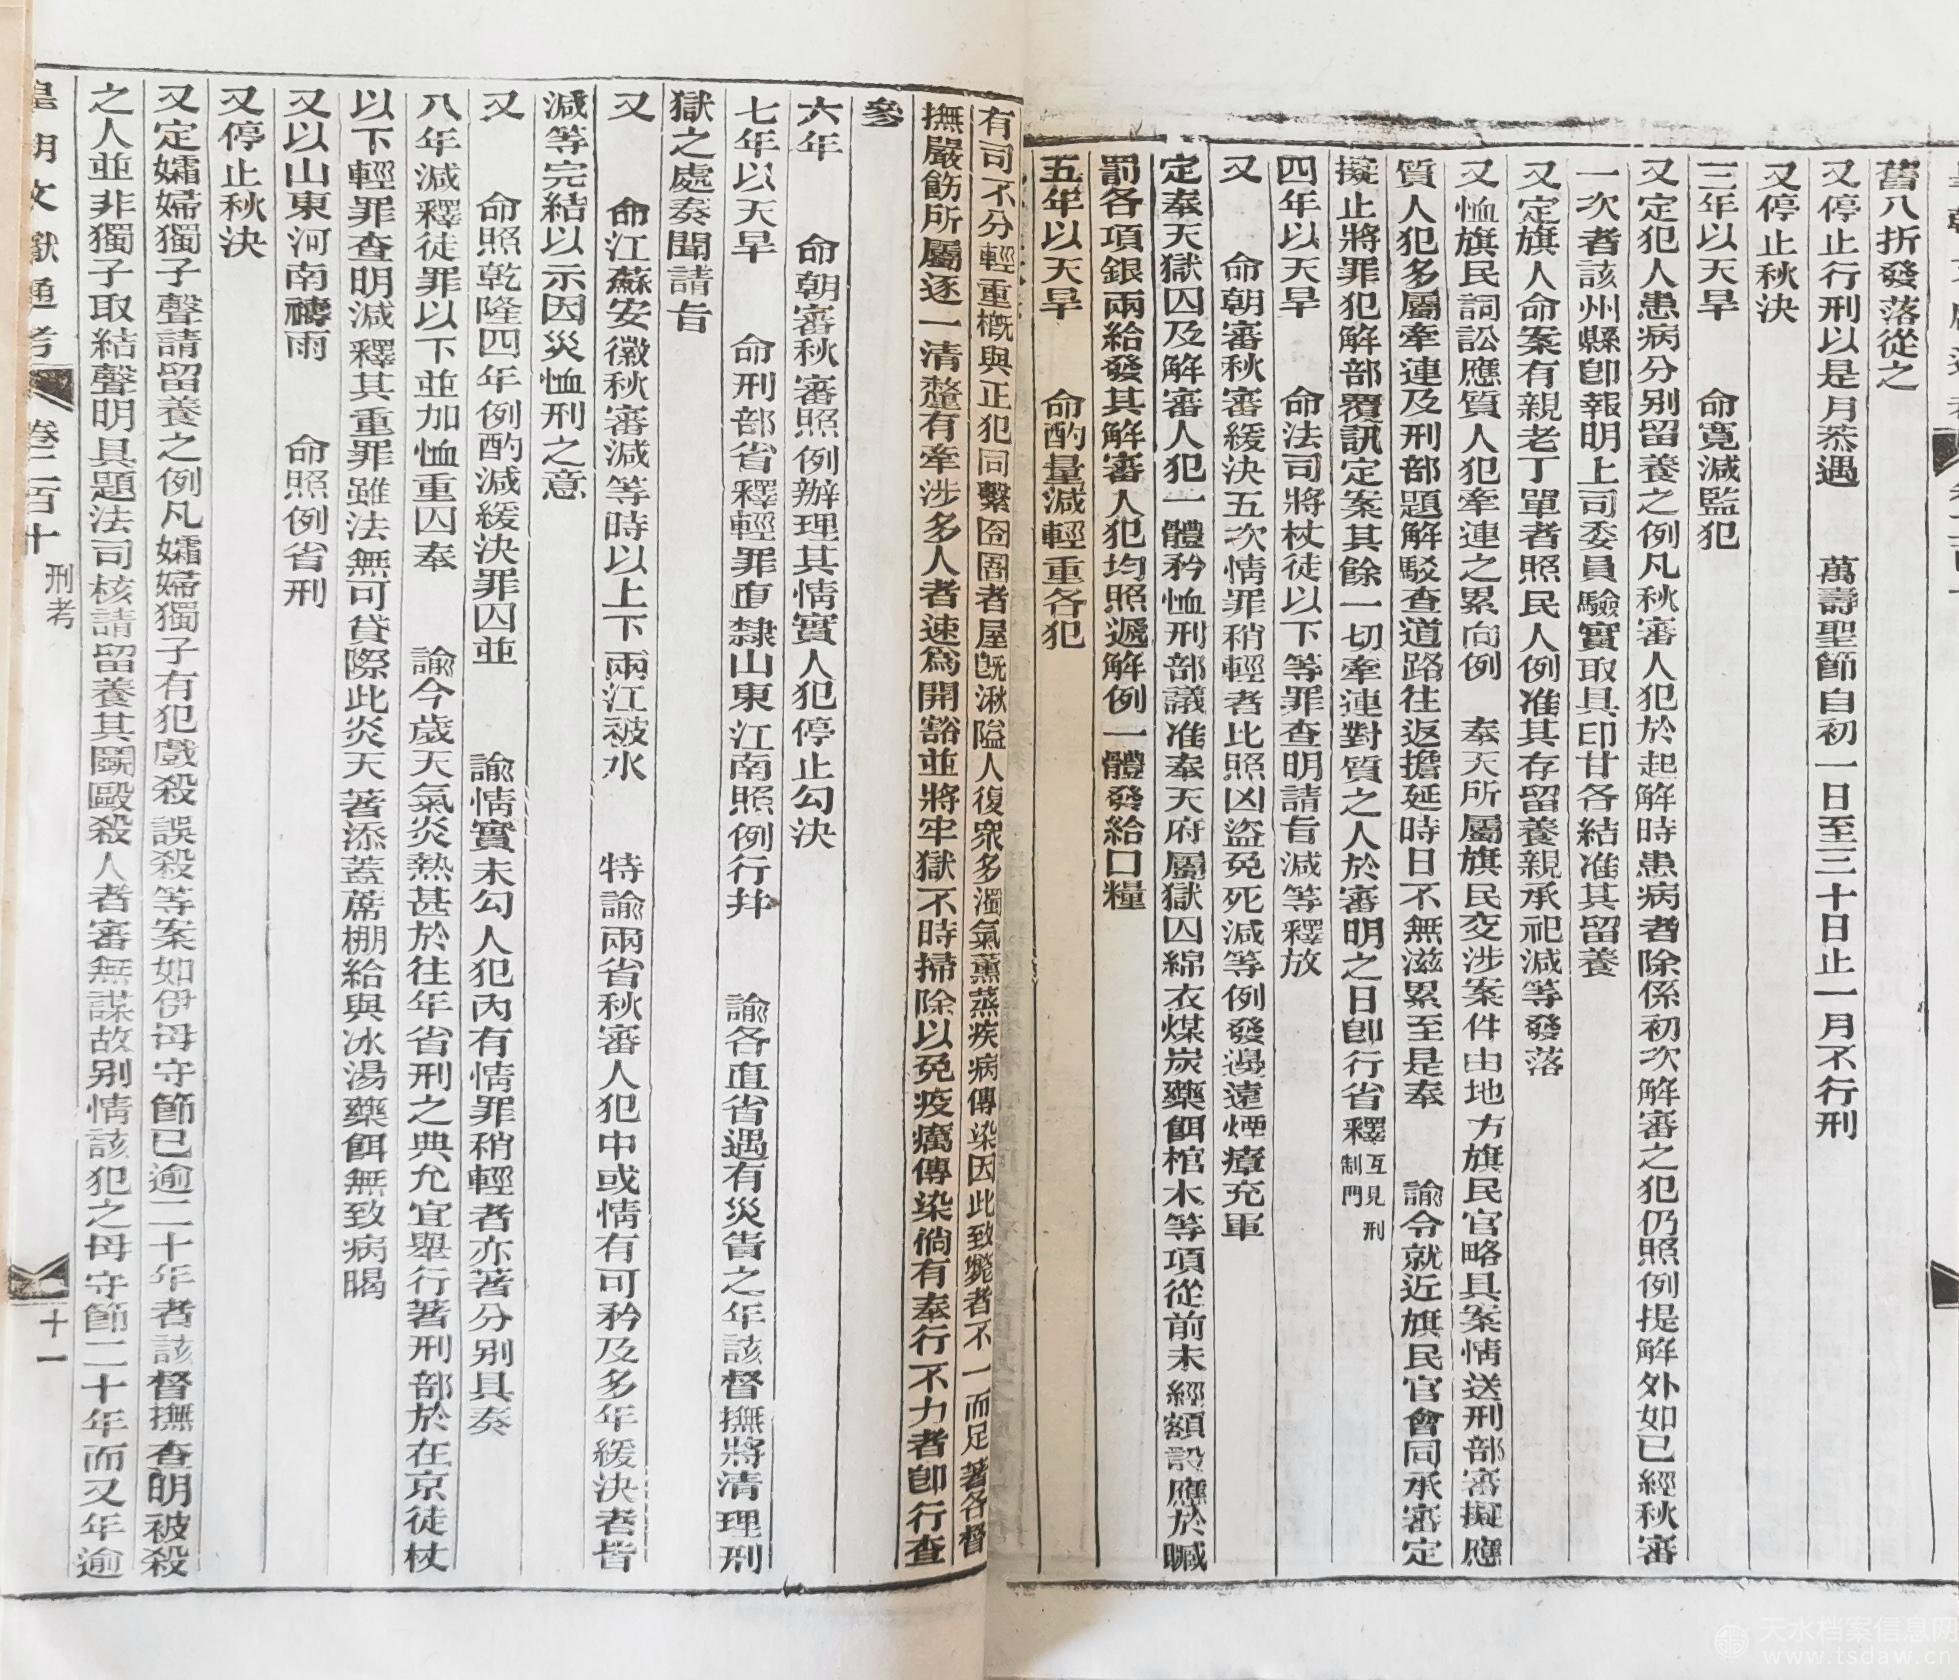 舊八折發落從之
又停止行刑以是月恭遇 萬壽聖節自初一日至三十日止一月不行刑
又停止秋決
三年以天旱 命寬減監犯
又定犯人患病分別留養之例凡秋審人犯於起解時患病者除係初次解審之犯仍照例提解外如已經秋審
一次者該州縣卽報明上司委員驗實取具印甘各結准其留養
又定旗人命案有親老丁單者照民人例准其存留養親承祀減等發落
又恤旗民詞訟應質人犯牽連之累向例 奉天所屬旗民交涉案件由地方旗民官略具案情送刑部審擬應
質人犯多屬牽連及刑部題解駁查道路往返擔延時日不無滋累至是奉 諭令就近旗民官會同承審定
擬止將罪犯解部覆訊定案其餘一切牽連對質之人於審明之日卽行省釋互見刑制門
四年以天旱 命法司將杖徒以下等罪查明請旨減等釋放
又 命朝審秋審緩決五次情罪稍輕者比照凶盜免死減等例發邊遠煙瘴充軍
定奉天獄囚及解審人犯一體矜恤刑部議准奉天府屬獄囚綿衣煤炭藥餌棺木等項從前未經額設應於贓
罰各項銀兩給發其解審人犯均照遞解例一體發給口糧
五年以天旱 命酌量減輕重各犯
有司不分輕重槪與正犯同繫囹圄者屋旣湫隘人復眾多濁氣薰蒸疾病傳染因此致斃者不一而足著各督
撫嚴飭所屬逐一清釐有牽涉多人者速爲開豁並將牢獄不時掃除以免疫癘傳染倘有奉行不力者卽行查
參
六年 命朝審秋審照例辦理其情實人犯停止勾決
七年以天旱 命刑部省釋輕罪直隸山東江南照例行幷 諭各直省遇有災眚之年該督撫將清理刑
獄之處奏聞請旨
又 命江蘇安徽秋審減等時以上下兩江被水 特諭兩省秋審人犯中或情有可矜及多年緩決者皆
減等完結以示因災恤刑之意
又 命照乾隆四年例酌減緩決罪囚並 諭情實未勾人犯內有情罪稍輕者亦著分別具奏
八年減釋徒罪以下並加恤重囚奉 諭今歲天氣炎熱甚於往年省刑之典允宜舉行著刑部於在京徒杖
以下輕罪查明減釋其重罪雖法無可貸際此炎天著添蓋蓆棚給與冰湯藥餌無致病暍
又以山東河南禱雨 命照例省刑
又停止秋決
又定孀婦獨子聲請留養之例凡孀婦獨子有犯戲殺誤殺等案如伊母守節已逾二十年者該督撫查明被殺
之人並非獨子取結聲明具題法司核請留養其鬭毆殺人者審無謀故别情該犯之母守節二十年而又年逾
皇朝文獻通考 卷二百十 刑考 十一
天水档案信息网
www.tsdaw.cn